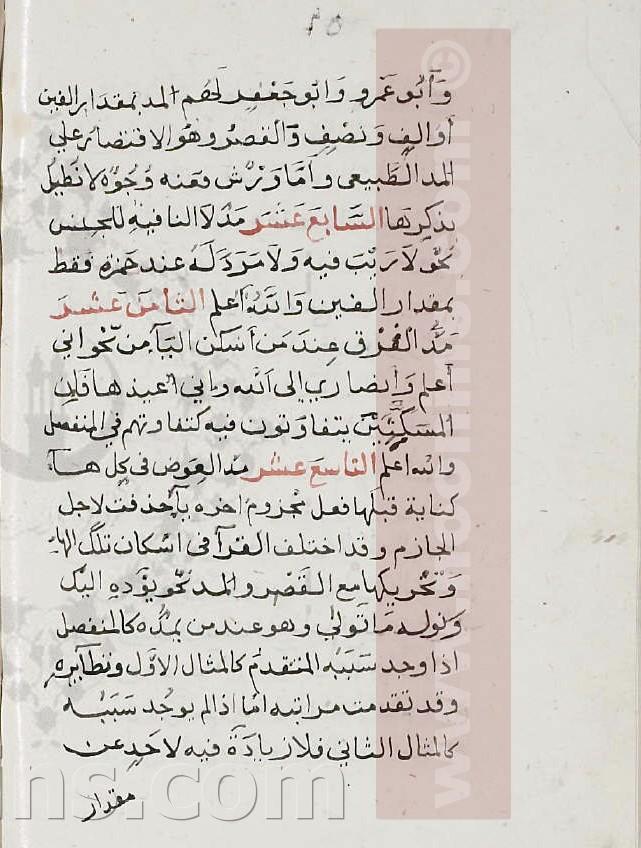 ٢٥
وأبو عمرو وابو جعفر لهم المد بمقدار الفين
أو الف ونصف والقصر وهو الاقتصار علي
المد الطبيعى وأما ورش فعنه وجوه لا نطيل
بذكرها السابع عشر مد لا النافية للجنس
نحو لا ريب فيه ولا مرد له عند حمزة فقط
بمقدار الفين والله أعلم الثامن عشر
مد الفرق عند من أسكن اليآ من نحو اني
أعلم وأنصاري إلى الله واني اعيذها فإن
المسكنين يتفاوتون فيه كتفاوتهم في المنفصل
والله اعلم التاسع عشر مد العوض فى كل هآ
كناية قبلها فعل مجزوم اخره يآ حذفت لاجل
الجازم وقد اختلف القرآ فى اسكان تلك الهاء
وتحريكها مع القصر والمد نحو يؤده اليك
ونوله ما تولى وهو عند من يمده كالمنفصل
اذا وجد سببه المتقدم كالمثال الاول ونظآيره
وقد تقدمت مراتبه امّا اذا لم يوجد سببه
كالمثال الثانى فلا زيادة فيه لاحد عن
مقدار